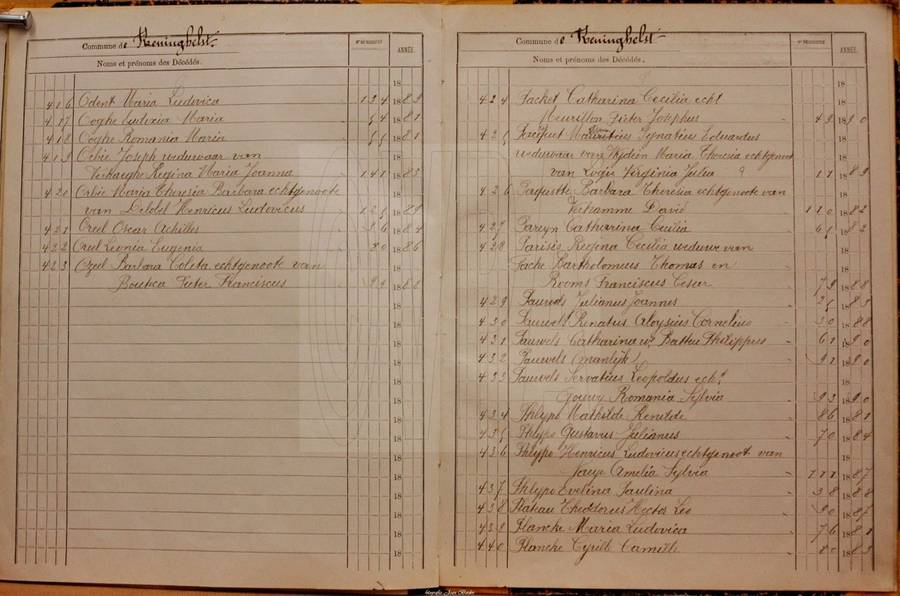 Commune de Reninghelst.
Noms et prénoms des Décédés.
N° REGISTRE
ANNÉE.
416 Odent Maria Ludovica 134 1889
417 Ooghe Ludovica Maria 54 1881
418 Ooghe Romania Maria 55 1881
419 Orbie Joseph weduwaar van
Verhaeghe Regina Maria Joanna 141 1883
420 Orbie Maria Theresia Barbara echtgenoote
van Henricus Ludovicus 125 1889
421 Oreel Oscar Achilles 36 1884
422 Oreel Leonia Eugenia 20 1886
423 Barbara Coleta echtgenoote van
Pieter Franciscus
Commune de Reninghelst.
Noms et prénoms des Décédés.
N° REGISTRE
ANNÉE.
424 Packet Catharina Cecilia echt
Meurillon Pieter Josephus 49 1890
425 Ignatius Eduardus
weduwaar van Maria Theresia echtgenoot
van Logie Virginia Julia ? 11 1889
426 Paquette Barbara Theresia echtgenoote van
Verhamme David 110 1882
427 Pareyn Catharina Cecilia 65 1882
428 Parisis Regina Cecilia weduwe van
Tache Bartholomeus Thomas en
Rooms Franciscus Cesar 73 1888
429 Pauwels Julianus Joannes 25 1883
430 Pauwels Renatus Aloysius Cornelius 30 1888
431 Pauwels Catharina we Batteu Philippus 61 1890
432 Pauwels (manlijk) 91 1890
433 Pauwels Servatius Leopoldus echt
Gouwy Romania Sylvia 93 1890
434 Phlypo Mathilde Renilde 86 1881
435 Phlypo Gustavus Julianus 70 1884
436 Phlypo Henricus Ludovicus echtgenoot van
Amelia Sylvia 111 1887
437 Phlypo Evelina Paulina 38 1888
438 Plateau Theodorus Hector Leo 90 1887
439 Plancke Maria Ludovica 76 1881
440 Plancke Cyrille Camille 80 1883